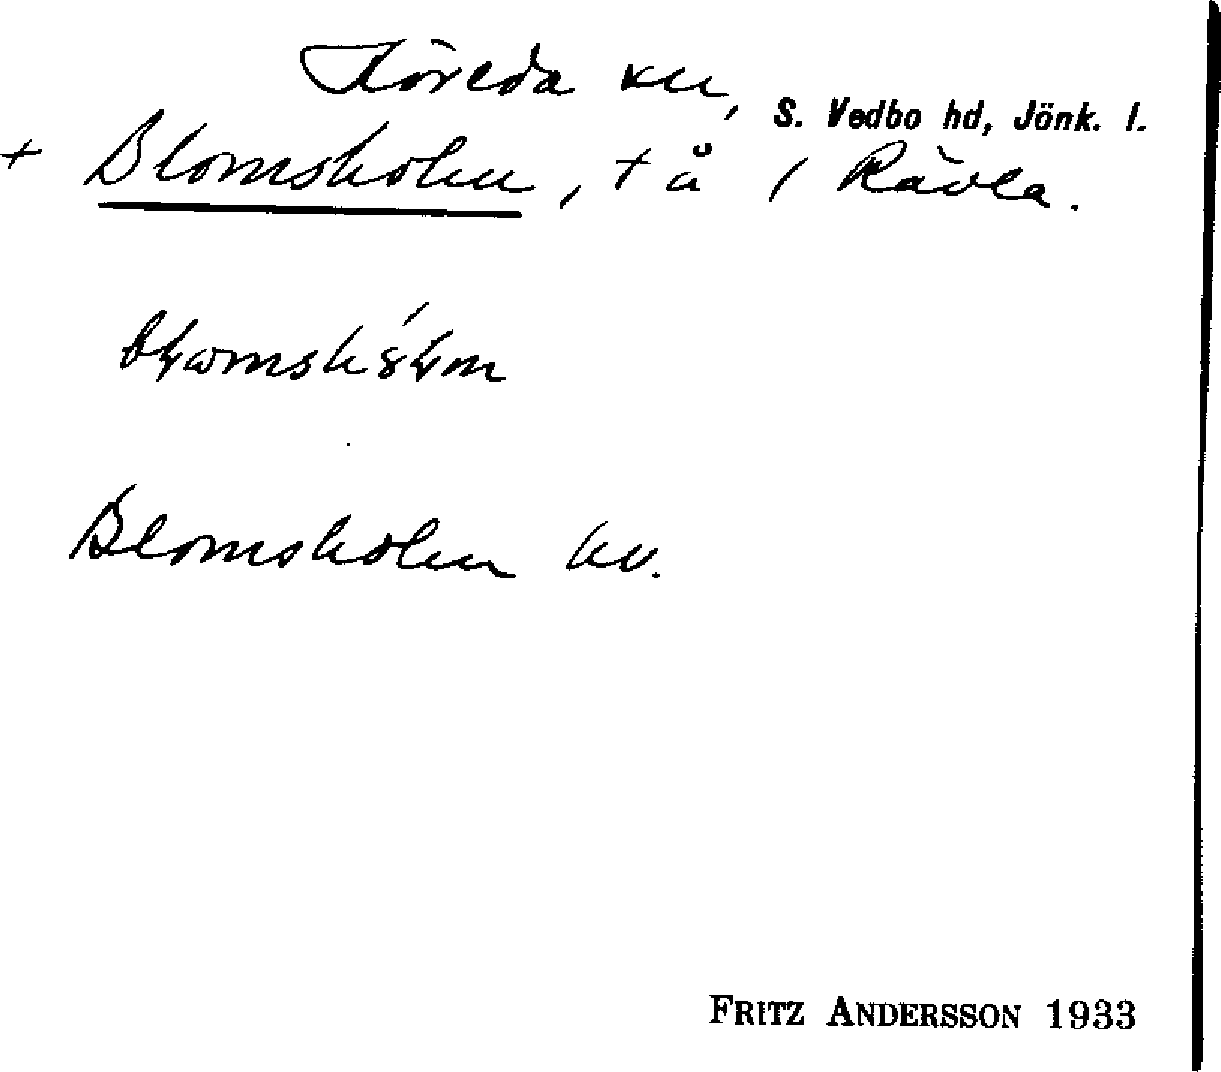 Höreda sn,
S. Vedbo hd, Jönk. l.
+ Blomsholm, + å / Rävla.
Blomsholm hv.
FRITZ ANDERSSON 1933